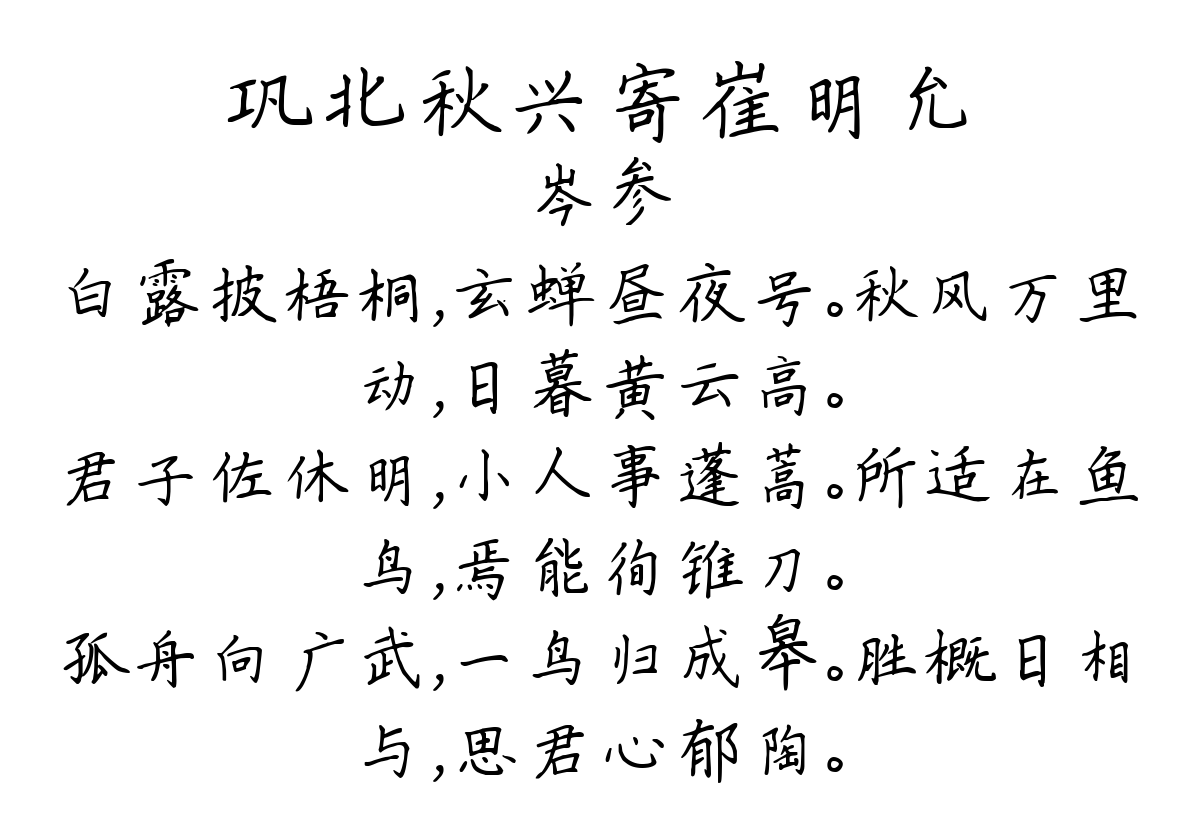 巩北秋兴寄崔明允
岑参
白露披梧桐,玄蝉昼夜号。秋风万里
动,日暮黄云高。
君子佐休明,小人事蓬蒿。所适在鱼
鸟,焉能徇锥刀。
孤舟向广武,一鸟归成皋。胜概日相
与,思君心郁陶。